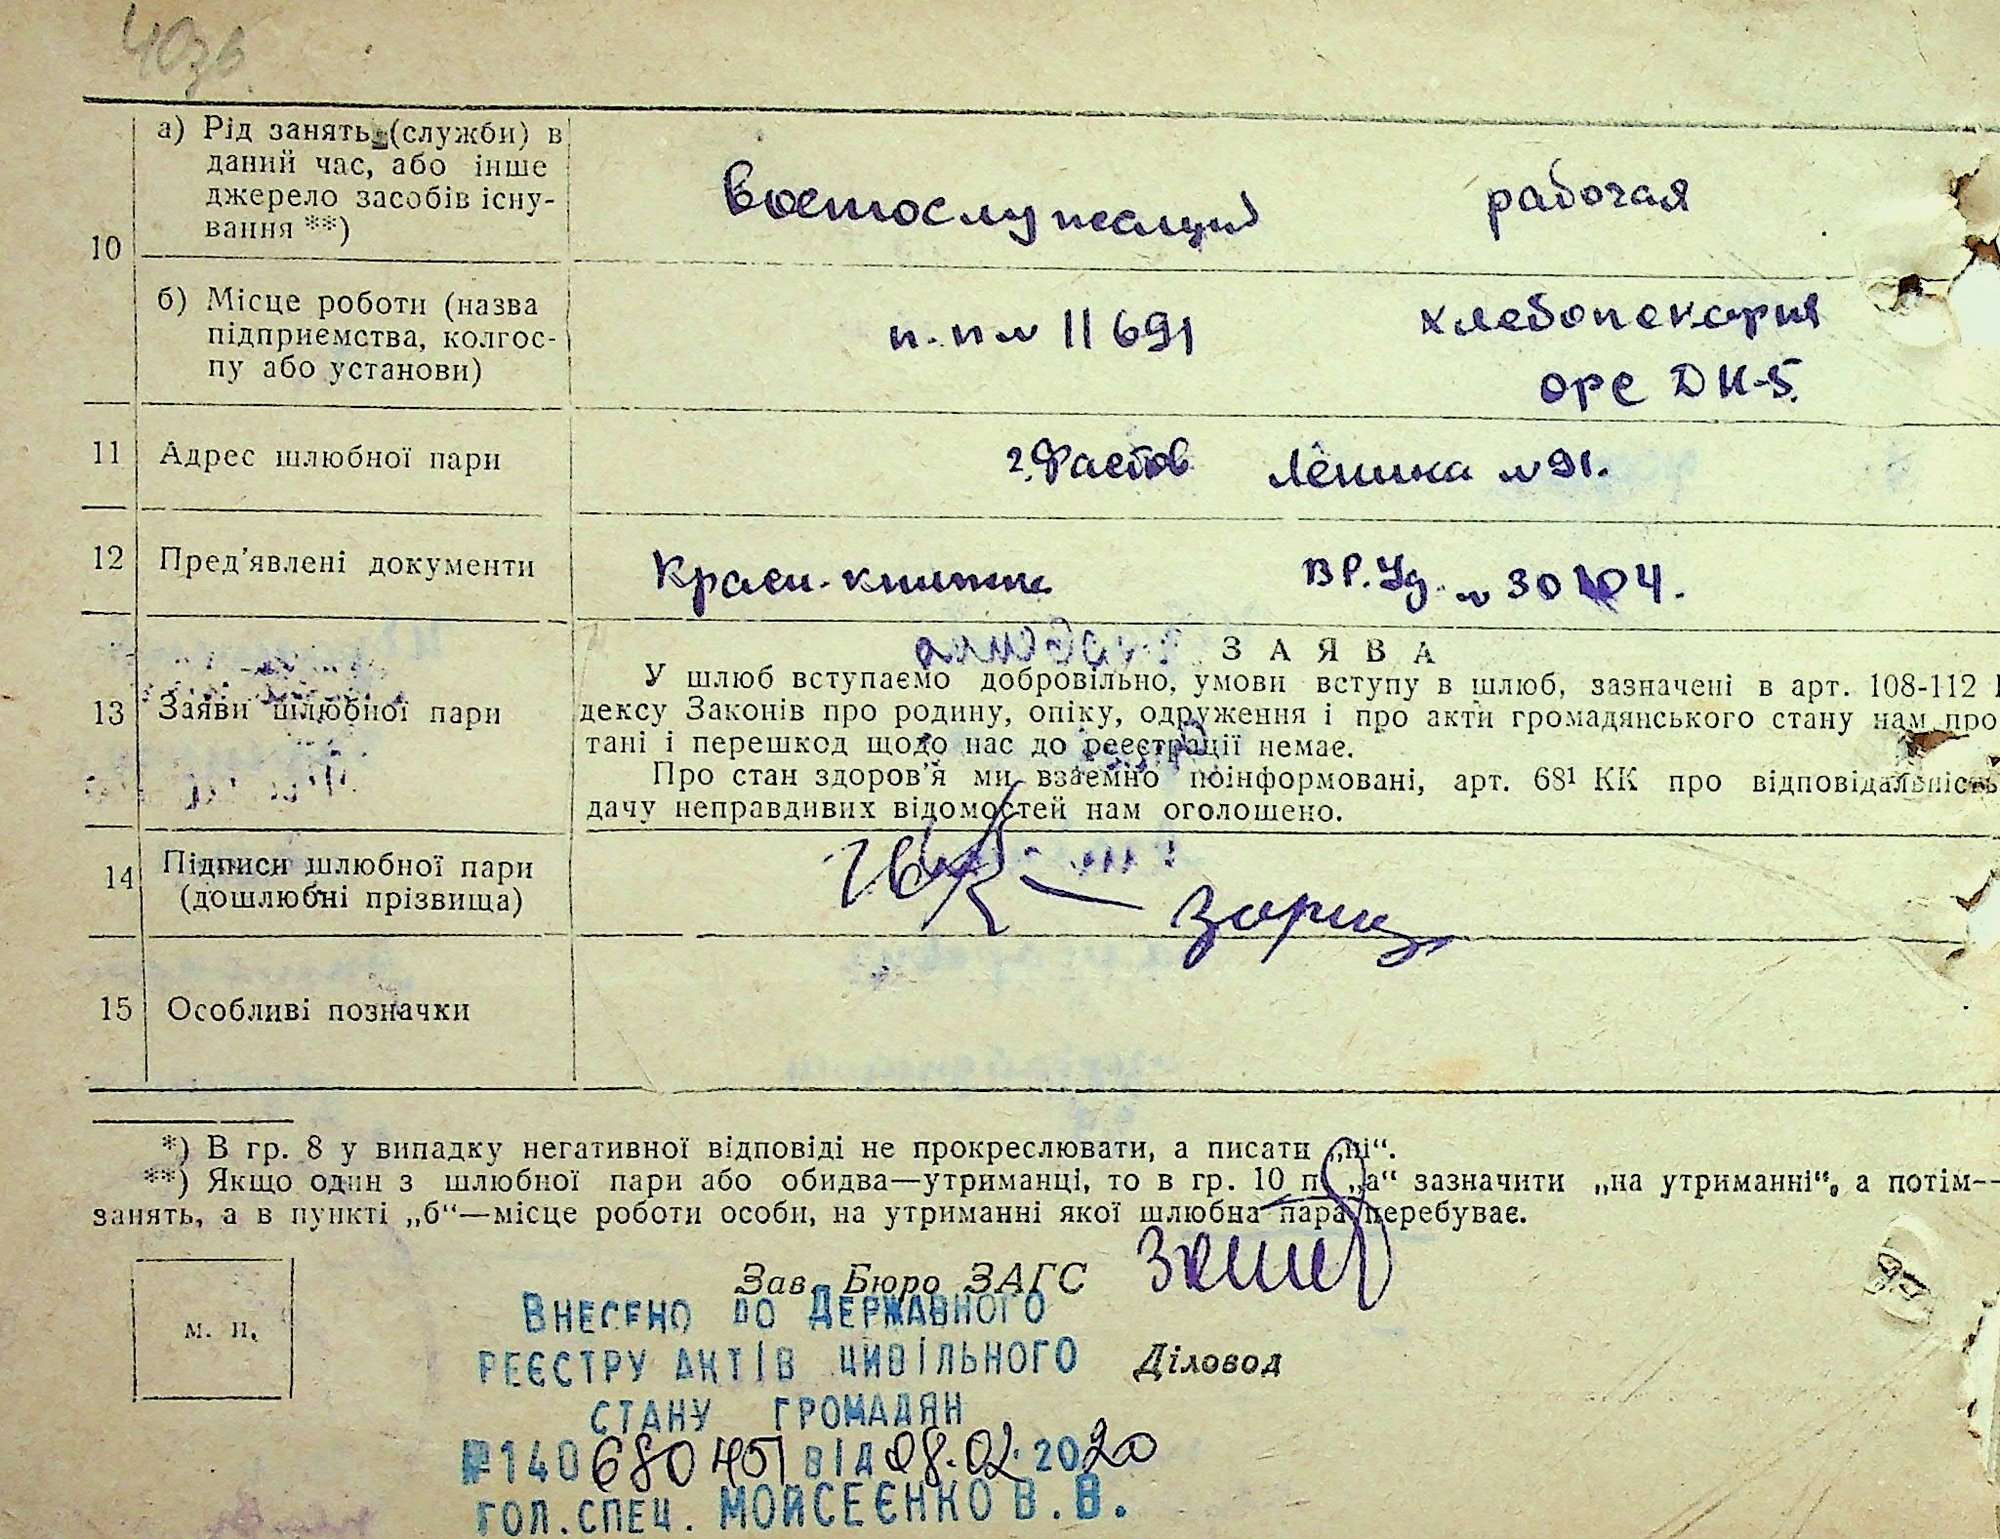 403в
10
а) Рід занять (служби) в
даний час, або інше
джерело засобів існу-
вання **)
военнослужащий рабочая
б) Місце роботи (назва
підприємства, колгос-
пу або установи)
п.п № 11691 хлебопекарня
орс ДН-5.
11 Адрес шлюбної пари г. Фастов Ленина № 91.
12 Пред'явлені документи Красн. книжка ВР. Уд. № 30104.
13 Заяви шлюбної пари
ЗАЯВА
У шлюб вступаємо добровільно, умови вступу в шлюб, зазначені в арт. 108-112
дексу Законів про родину, опіку, одруження і про акти громадянського стану нам про
тані і перешкод щодо нас до реєстрації немає.
Про стан здоров'я ми взаємно поінформовані, арт. 68¹ КК про відповідальність
дачу неправдивих відомостей нам оголошено.
14 Підписи шлюбної пари
(дошлюбні прізвища)
15 Особливі позначки
*) В гр. 8 у випадку негативної відповіді не прокреслювати, а писати „ні“.
**) Якщо один з шлюбної пари або обидва—утриманці, то в гр. 10 п. „а“ зазначити „на утриманні“, а потім—
занять, а в пункті „б“—місце роботи особи, на утриманні якої шлюбна пара перебуває.
Зав. Бюро ЗАГС
м. п.
ВНЕСЕНО ДО ДЕРЖАВНОГО
РЕЄСТРУ АКТІВ ЦИВІЛЬНОГО
Діловод
СТАНУ ГРОМАДЯН
№140680451 від 08.02.2020
ГОЛ.СПЕЦ. МОЙСЕЄНКО В.В.